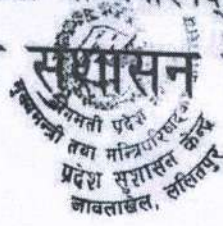 सुशासन
वागमती प्रदेश
मुख्यमन्त्री तथा मन्त्रिपरिषद्को
प्रदेश सुशासन केन्द्र
जावलाखेल, ललितपुर